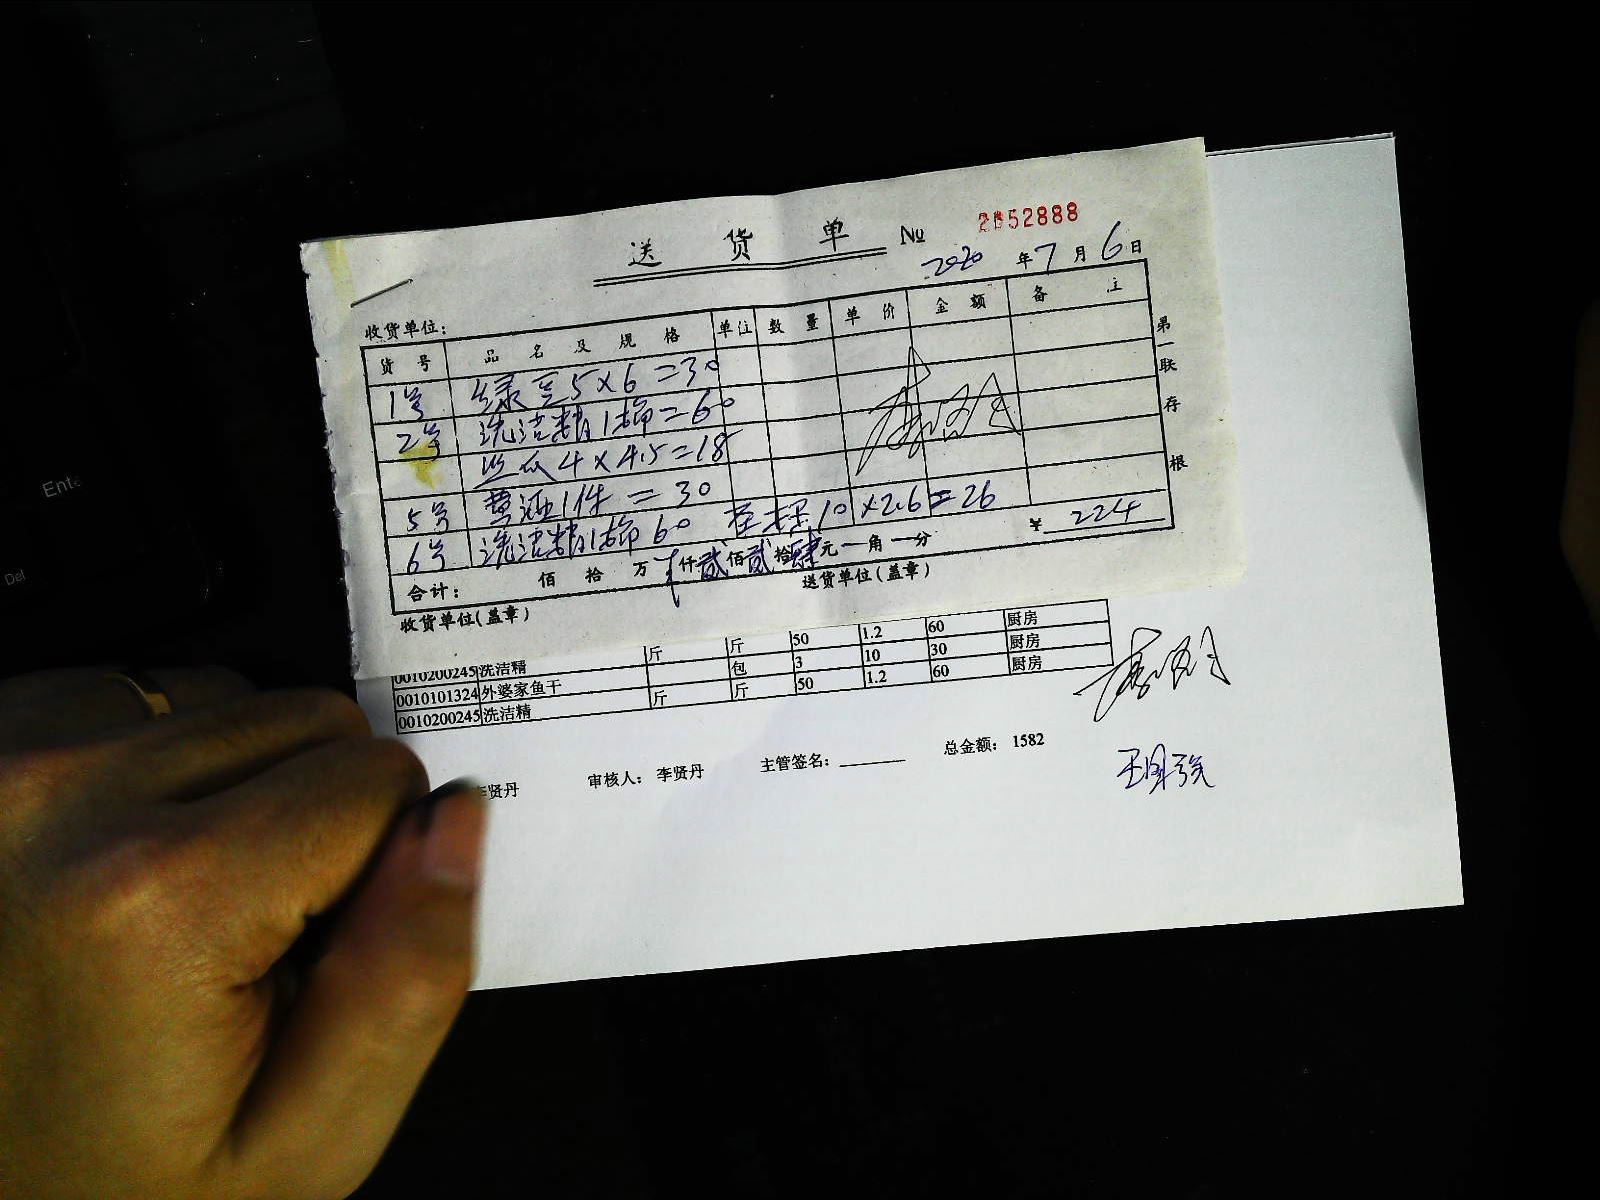 送货单 № 2152888
2020年7月6日
收货单位:
货号 品名及规格 单位 数量 单价 金额 备注
1号 绿豆5×6=30
2号 洗洁精1桶=60
丝瓜4×4.5=18
5号 1件=30
6号 洗洁精1桶60 10×2.6=26
合计: 佰拾万仟贰佰贰拾肆元一角一分 ¥ 224
收货单位(盖章) 送货单位(盖章)
第一联存根
斤 斤 50 1.2 60 厨房
0010200245 洗洁精 包 3 10 30 厨房
0010101324 外婆家鱼干 斤 斤 50 1.2 60 厨房
0010200245 洗洁精
李贤丹 审核人: 李贤丹 主管签名: 总金额: 1582
Del